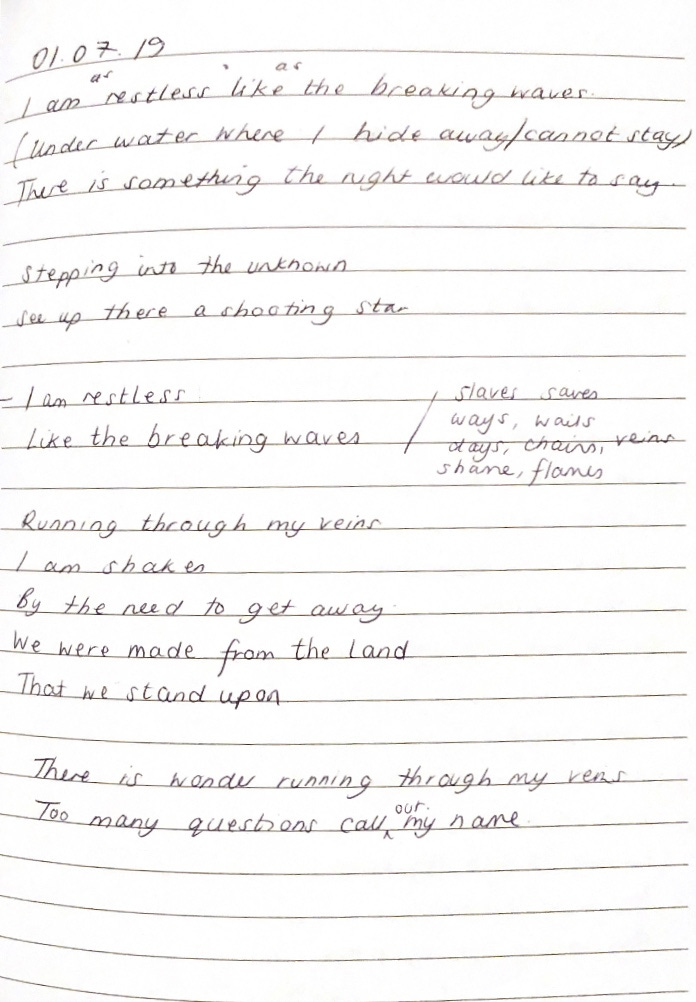 01.07.19
as as
I am restless like the breaking waves.
(Under water where I hide away/cannot stay)
There is something the night would like to say.
Stepping into the unknown
See up there a shooting star
- I am restless / slaves saves
ways, wails
Like the breaking waves
days, chains, veins
shame, flames
Running through my veins
I am shaken
By the need to get away.
We were made from the land
That we stand upon
There is wonder running through my veins
out
Too many questions call my name.